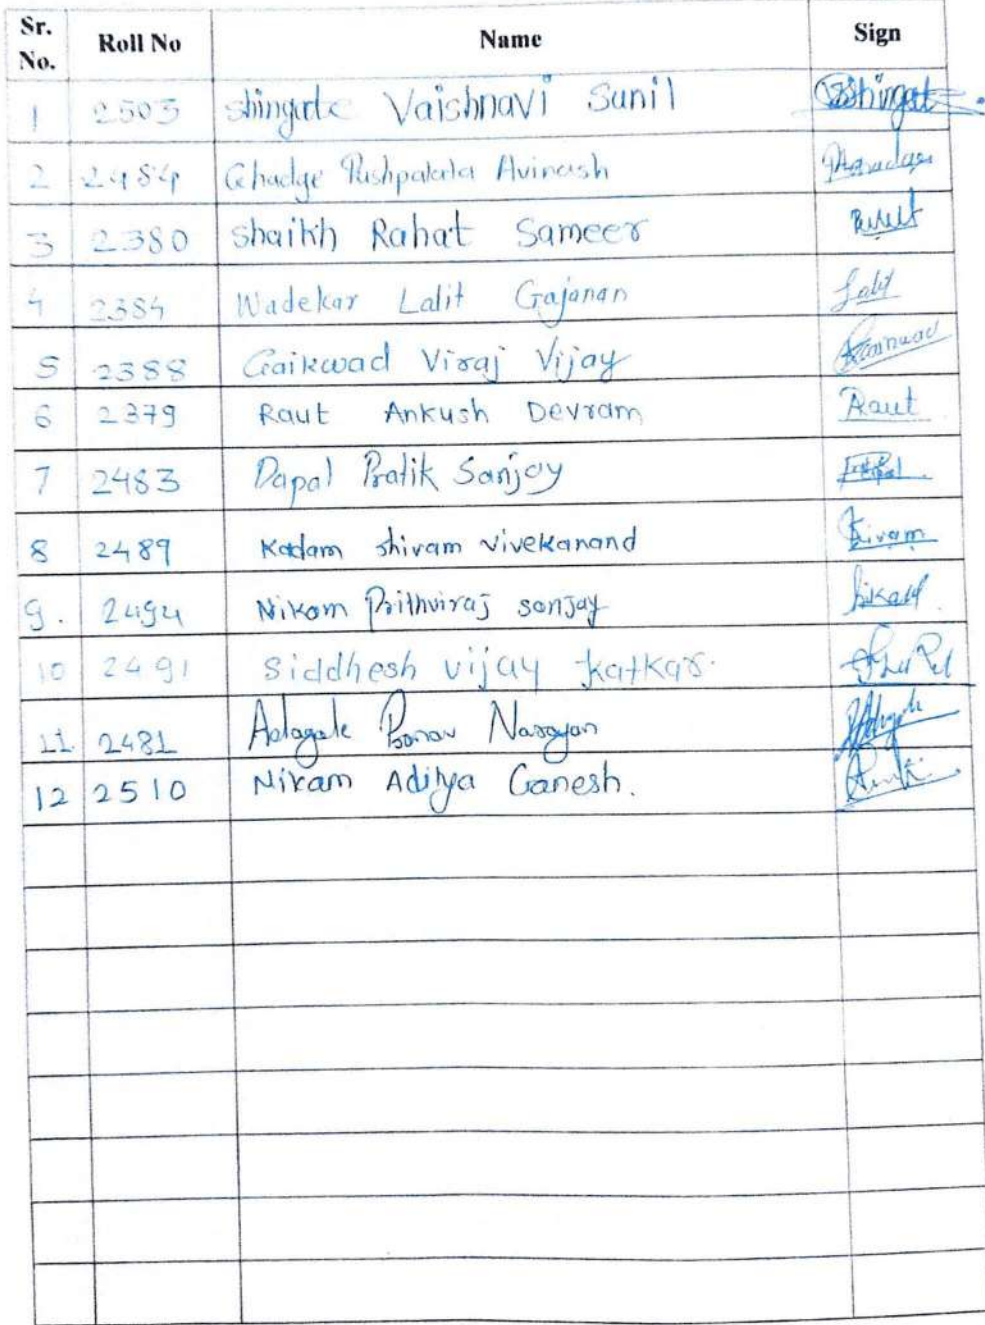 Sr. No. Roll No Name Sign
1 2503 Shingate Vaishnavi Sunil Shingate
2 2484 Ghadge Pushpalata Avinash
3 2380 Shaikh Rahat Sameer
4 2384 Wadekar Lalit Gajanan Lalit
5 2388 Gaikwad Viraj Vijay
6 2379 Raut Ankush Devram Raut
7 2483 Dapal Pratik Sanjay
8 2489 Kadam Shivam Vivekanand
9. 2494 Nikam Prithviraj Sanjay
10 2491 Siddhesh vijay katkar.
11. 2481 Narayan
12 2510 Nikam Aditya Ganesh.